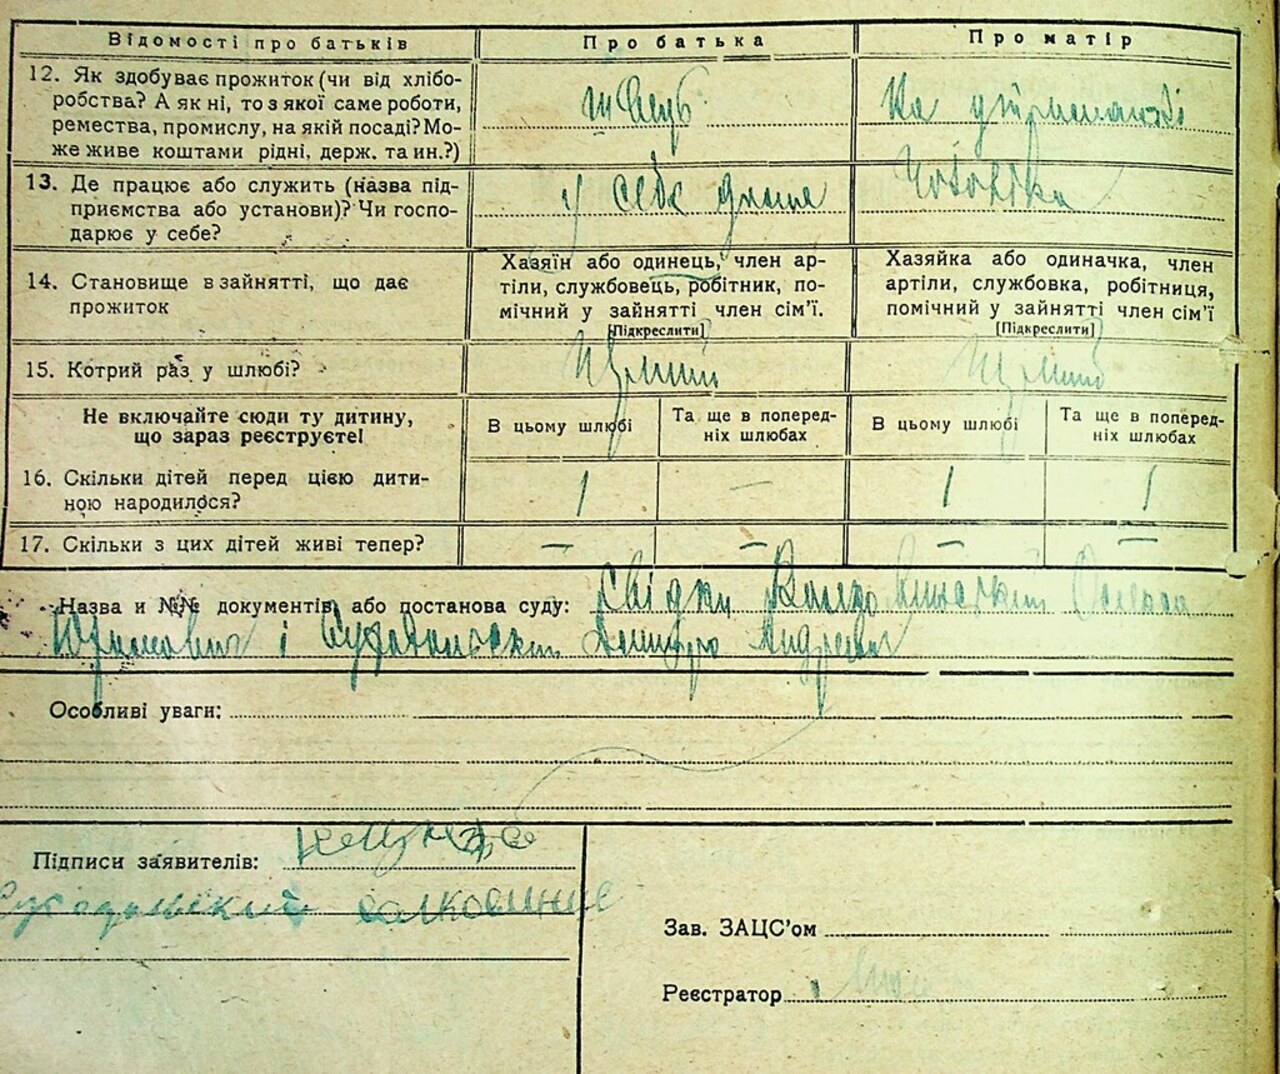 Відомості про батьків
Про батька
Про матір
12. Як здобуває прожиток (чи від хлібо-
робства? А як ні, то з якої саме роботи,
ремества, промислу, на якій посаді? Мо-
же живе коштами рідні, держ. та ин.?)
На утриманні
13. Де працює або служить (назва під-
приємства або установи)? Чи госпо-
дарює у себе?
у себе дома
Чоловіка
14. Становище в зайнятті, що дає
прожиток
Хазяїн або одинець, член ар-
тіли, службовець, робітник, по-
мічний у зайнятті член сім'ї.
[Підкреслити]
Хазяйка або одиначка, член
артіли, службовка, робітниця,
помічний у зайнятті член сім'ї
[Підкреслити]
15. Котрий раз у шлюбі?
Не включайте сюди ту дитину,
що зараз реєструєте!
В цьому шлюбі
Та ще в поперед-
ніх шлюбах
В цьому шлюбі
Та ще в поперед-
ніх шлюбах
16. Скільки дітей перед цією дити-
ною народилося?
1 — 1 1
17. Скільки з цих дітей живі тепер?
— — — —
Назва и №№ документів або постанова суду: Свідки
і
Особливі уваги:
Підписи заявителів:
Зав. ЗАЦС'ом
Реєстратор